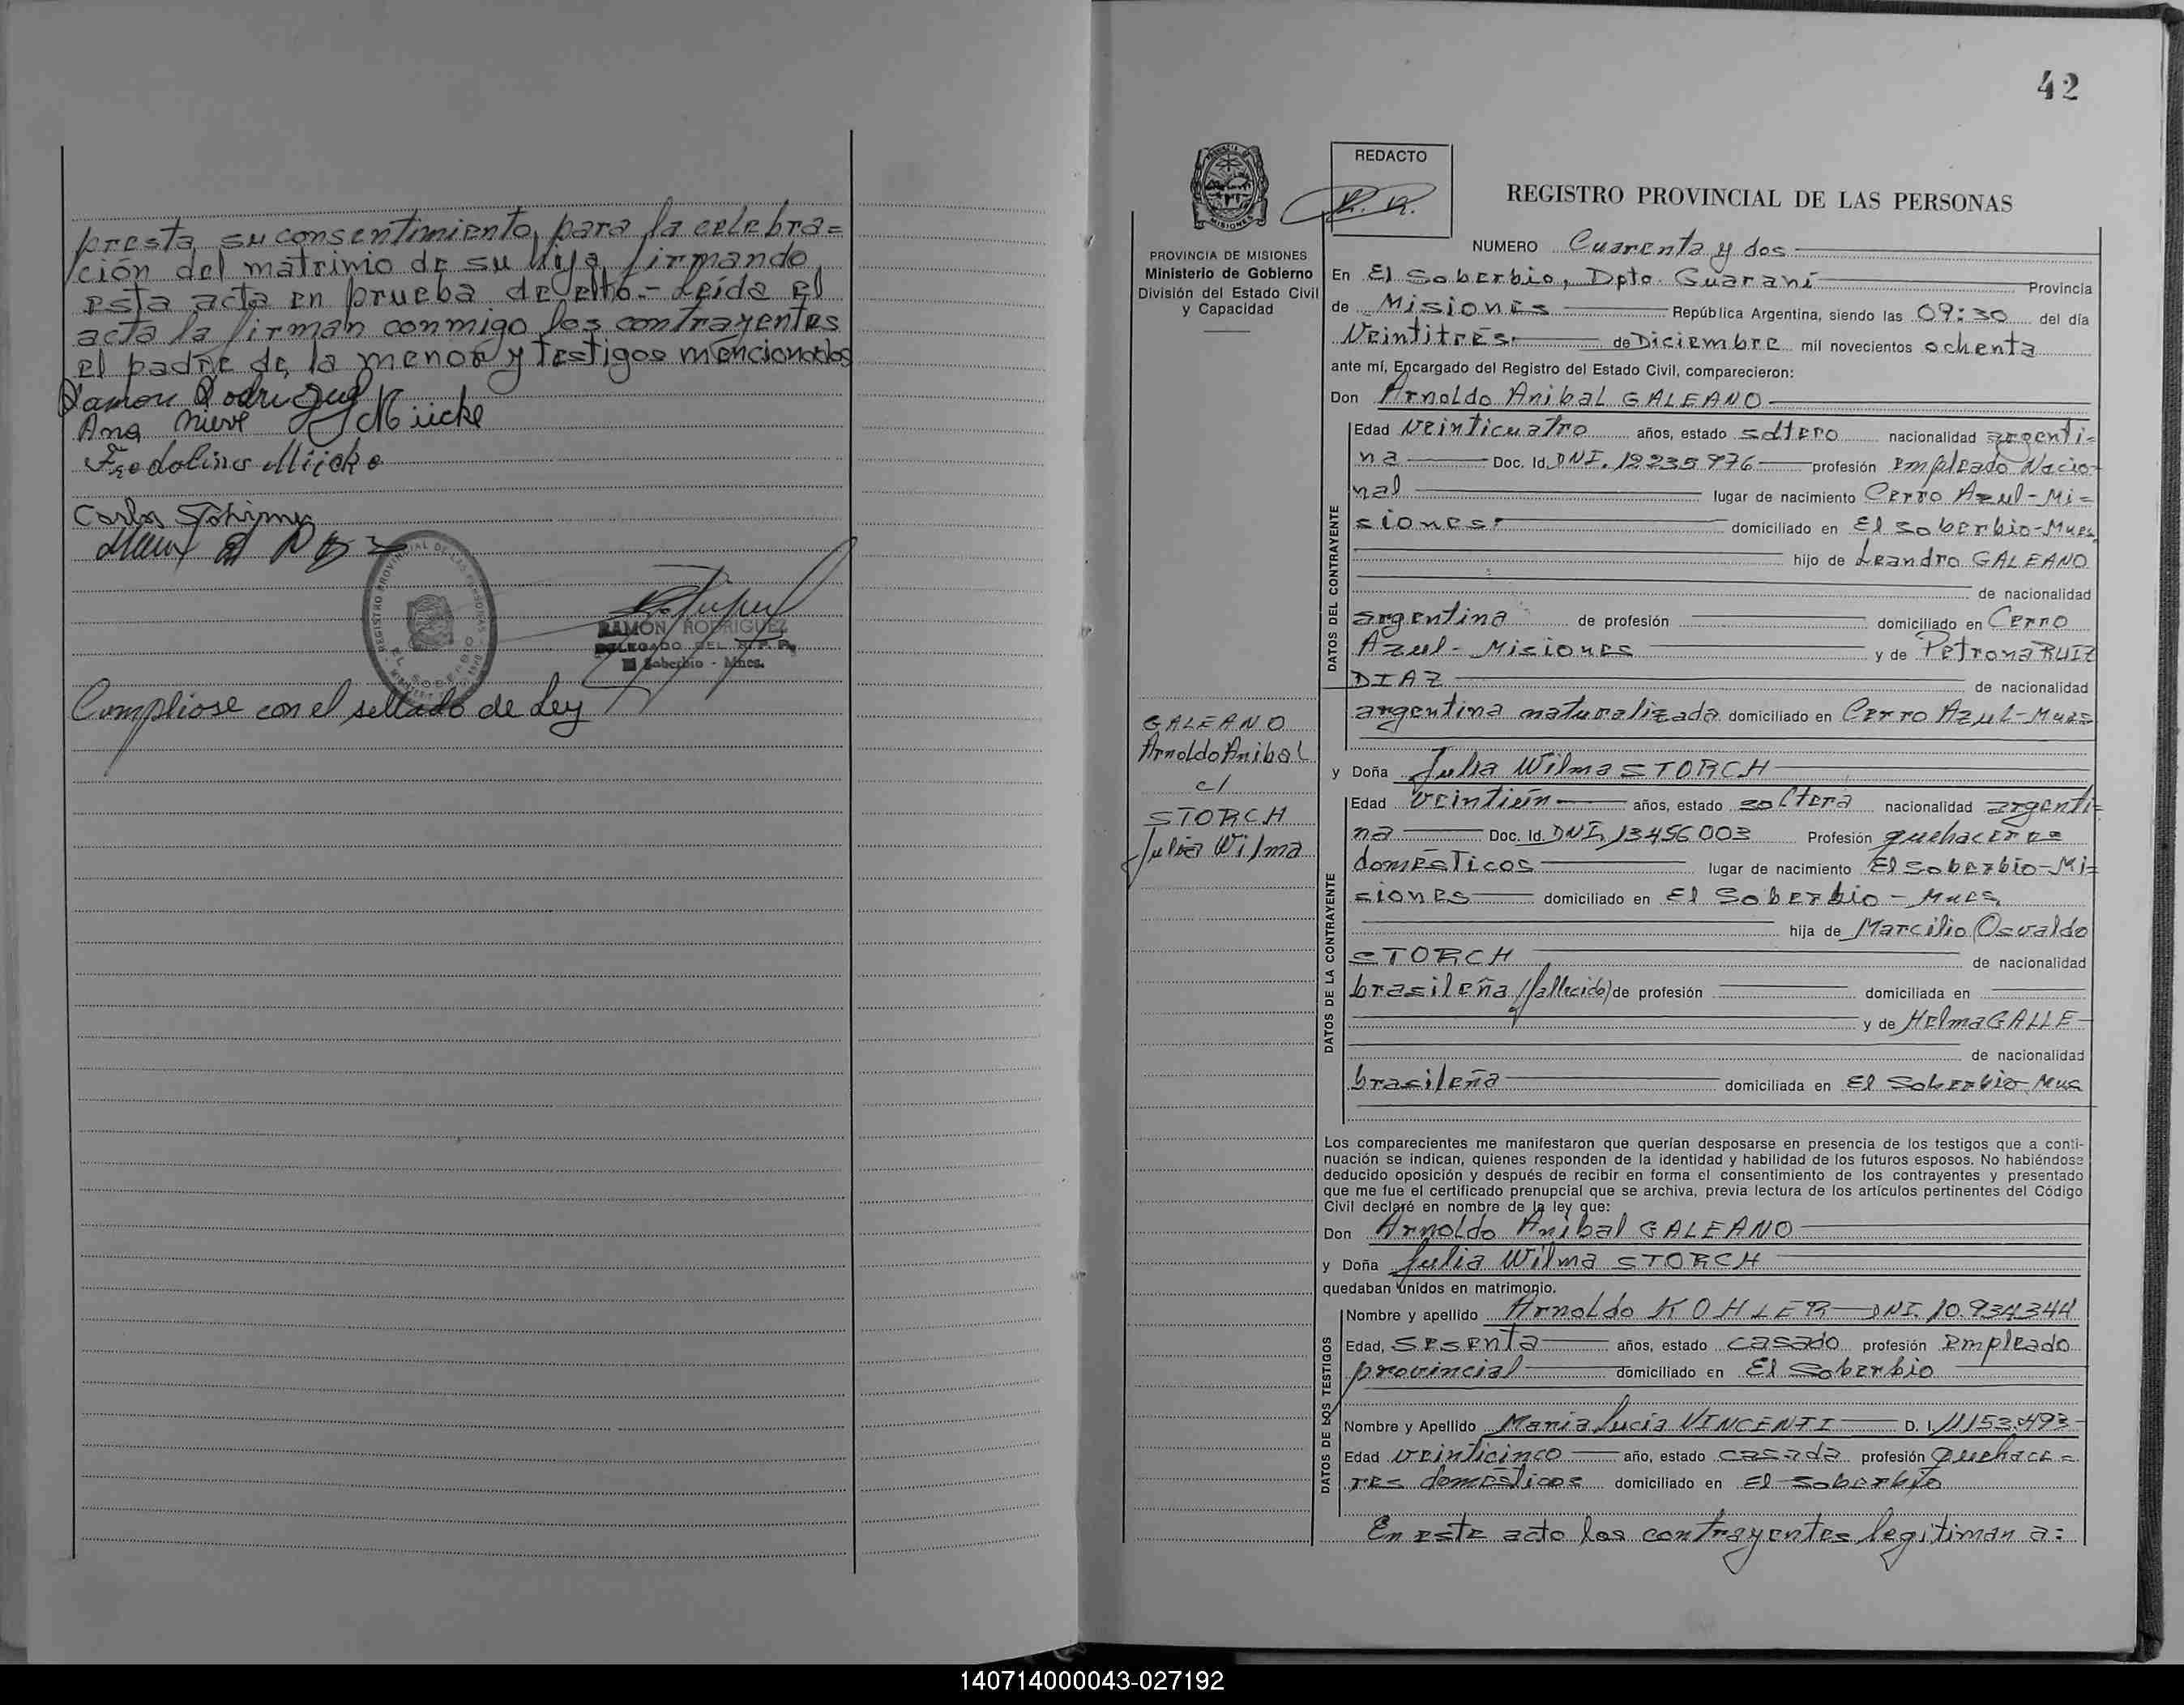 presta su consentimiento para la celebra=
ción del matrimio de su hija firmando
esta acta en prueba de ello.- Leída el
acta la firman conmigo los contrayentes
el padre de la menor y testigos mencionados
Ramon Rodriguez
Ana Mücke
Fredolino Mücke
Carlos
REGISTRO PROVINCIAL DE LAS PERSONAS
EL SOBERBIO
RAMÓN RODRIGUEZ
DELEGADO DEL R. P. P.
El Soberbio - Mnes.
Cumpliose con el sellado de Ley
42
PROVINCIA DE MISIONES
Ministerio de Gobierno
División del Estado Civil
y Capacidad
GALEANO
Arnoldo Anibal
c/
STORCH
Julia Wilma
REDACTO
R. R.
REGISTRO PROVINCIAL DE LAS PERSONAS
NUMERO Cuarenta y dos
En El Soberbio, Dpto. Guaraní Provincia
de Misiones República Argentina, siendo las 09:30 del día
Veintitrés de Diciembre mil novecientos ochenta
ante mí, Encargado del Registro del Estado Civil, comparecieron:
Don Arnoldo Anibal GALEANO
DATOS DEL CONTRAYENTE
Edad Veinticuatro años, estado soltero nacionalidad argenti=
na Doc. Id. DNI. 12235976 profesión Empleado Nacio-
nal lugar de nacimiento Cerro Azul-Mi=
siones domiciliado en El Soberbio-Mnes.
hijo de Leandro GALEANO
de nacionalidad
argentina de profesión domiciliado en Cerro
Azul- Misiones y de Petrona RUIZ
DIAZ de nacionalidad
argentina naturalizada domiciliado en Cerro Azul-Mnes
y Doña Julia Wilma STORCH
DATOS DE LA CONTRAYENTE
Edad Veintiún años, estado soltera nacionalidad argenti=
na Doc. Id. DNI. 13456003 Profesión quehaceres
domésticos lugar de nacimiento El Soberbio-Mi=
siones domiciliado en El Soberbio - Mnes
hija de Marcilio Osvaldo
STORCH de nacionalidad
brasileña (fallecido) de profesión domiciliada en
y de Helma GALLE
de nacionalidad
brasileña domiciliada en El Soberbio Mns
Los comparecientes me manifestaron que querían desposarse en presencia de los testigos que a conti-
nuación se indican, quienes responden de la identidad y habilidad de los futuros esposos. No habiéndose
deducido oposición y después de recibir en forma el consentimiento de los contrayentes y presentado
que me fue el certificado prenupcial que se archiva, previa lectura de los artículos pertinentes del Código
Civil declaré en nombre de la ley que:
Don Arnoldo Anibal GALEANO
y Doña Julia Wilma STORCH
quedaban unidos en matrimonio.
DATOS DE LOS TESTIGOS
Nombre y apellido Arnoldo KOHLER DNI. 10.934.344
Edad, Sesenta años, estado casado profesión Empleado
provincial domiciliado en El Soberbio
Nombre y Apellido Maria Lucia VINCENTI D. I. 11153.493
Edad veinticinco año, estado casada profesión Quehace=
res domésticos domiciliado en El Soberbio
En este acto los contrayentes legitiman a:
140714000043-027192